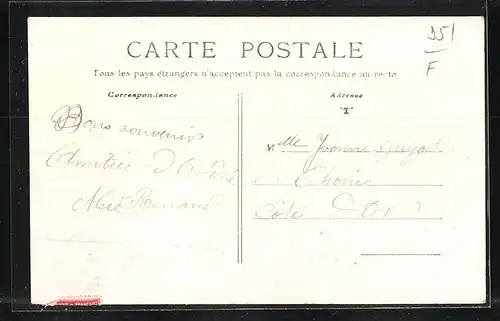 95/
F
CARTE POSTALE
Tous les pays étrangers n'acceptent pas la correspondance au recto
Correspondance
Adresse
Bons souvenirs
Amitiés D'André
Renaud
Mlle Yvonne
à
Côte D'Or